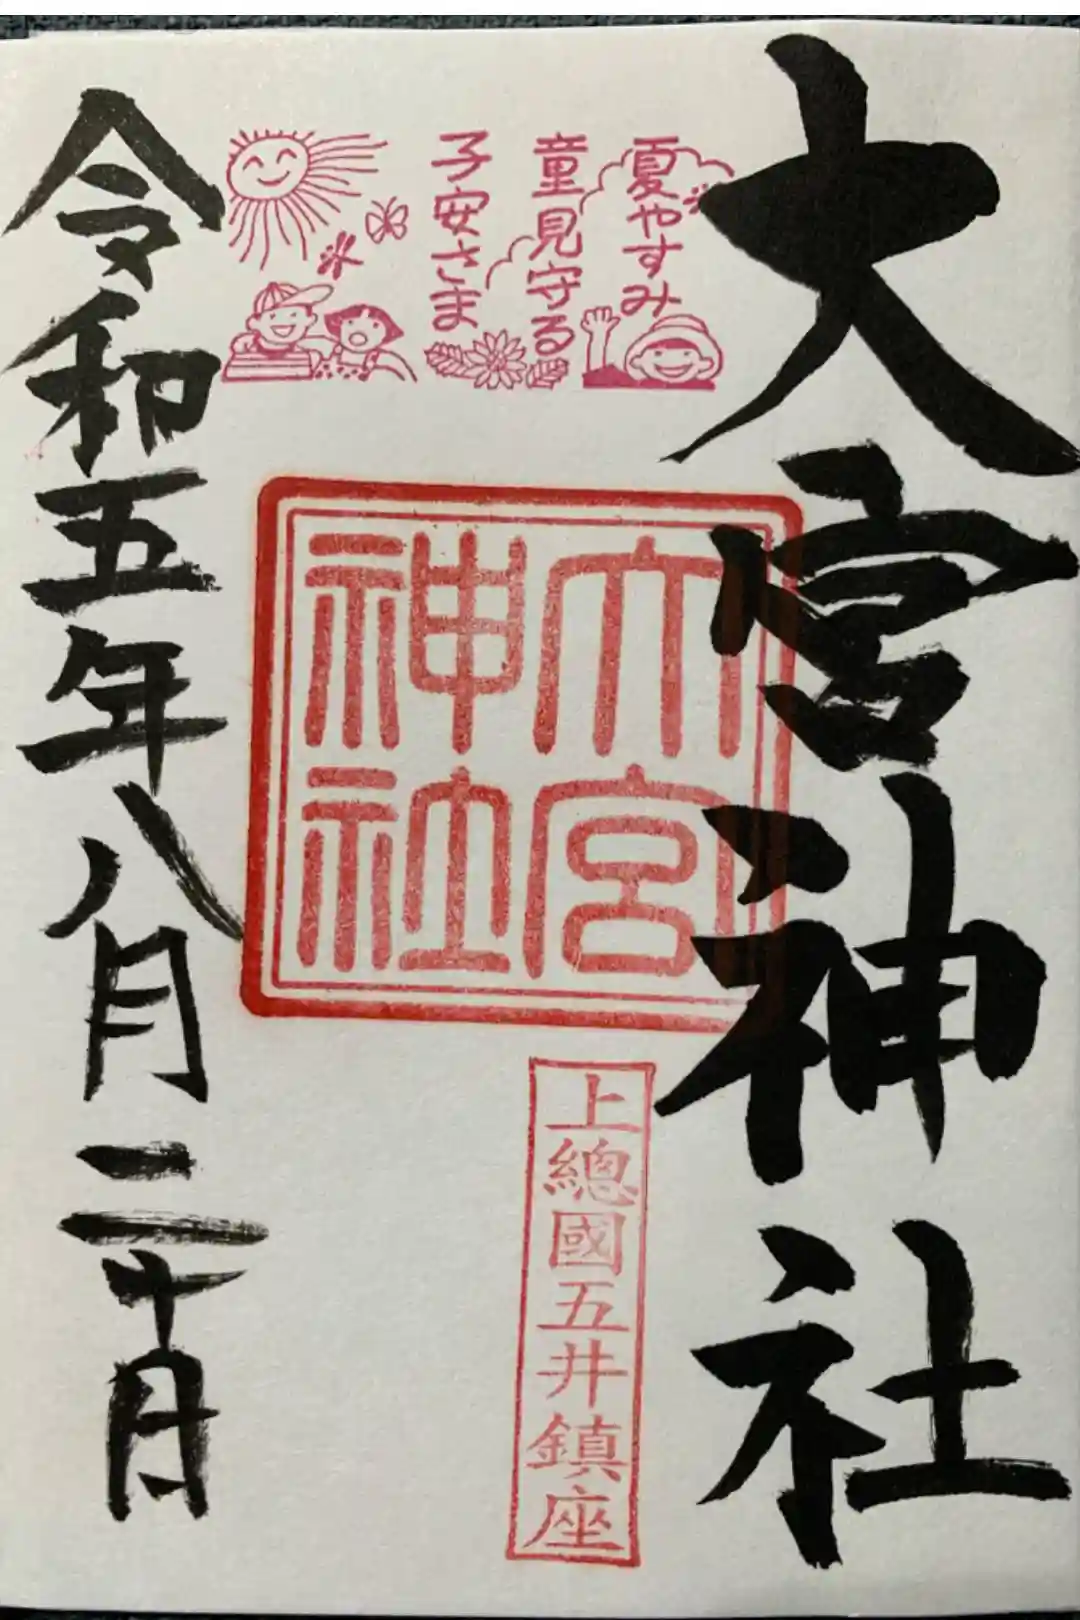 大宮神社
夏やすみ
童見守る
子安さま
大宮
神社
上總國五井鎮座
令和五年八月二十日